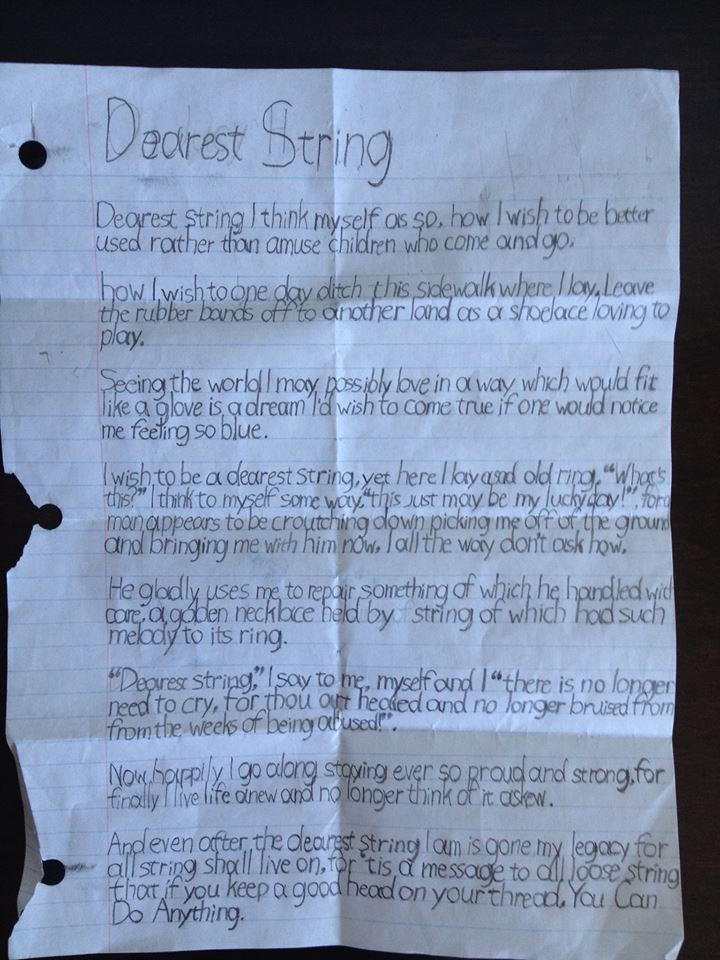 Dearest String
Dearest string I think myself as so, how I wish to be better
used rather than amuse children who come and go.
how I wish to one day ditch this sidewalk where I lay, Leave
the rubber bands off to another land as a shoelace loving to
play.
Seeing the world I may possibly love in a way which would fit
like a glove is a dream I'd wish to come true if one would notice
me feeling so blue.
I wish to be a dearest string, yet here I lay a sad old ring, "What's
this?" I think to myself some way, "this just may be my lucky day!", for a
man appears to be croutching down picking me off of the ground
and bringing me with him now, I all the way don't ask how.
He gladly uses me to repair something of which he handled with
care, a golden necklace held by string of which had such
melody to its ring.
"Dearest string," I say to me, myself and I "there is no longer
need to cry, for thou art healed and no longer bruised from
from the weeks of being abused!".
Now happily I go along staying ever so proud and strong, for
finally I live life anew and no longer think of it askew.
And even after the dearest string I am is gone my legacy for
all string shall live on, for 'tis a message to all loose string
that if you keep a good head on your thread, You Can
Do Anything.